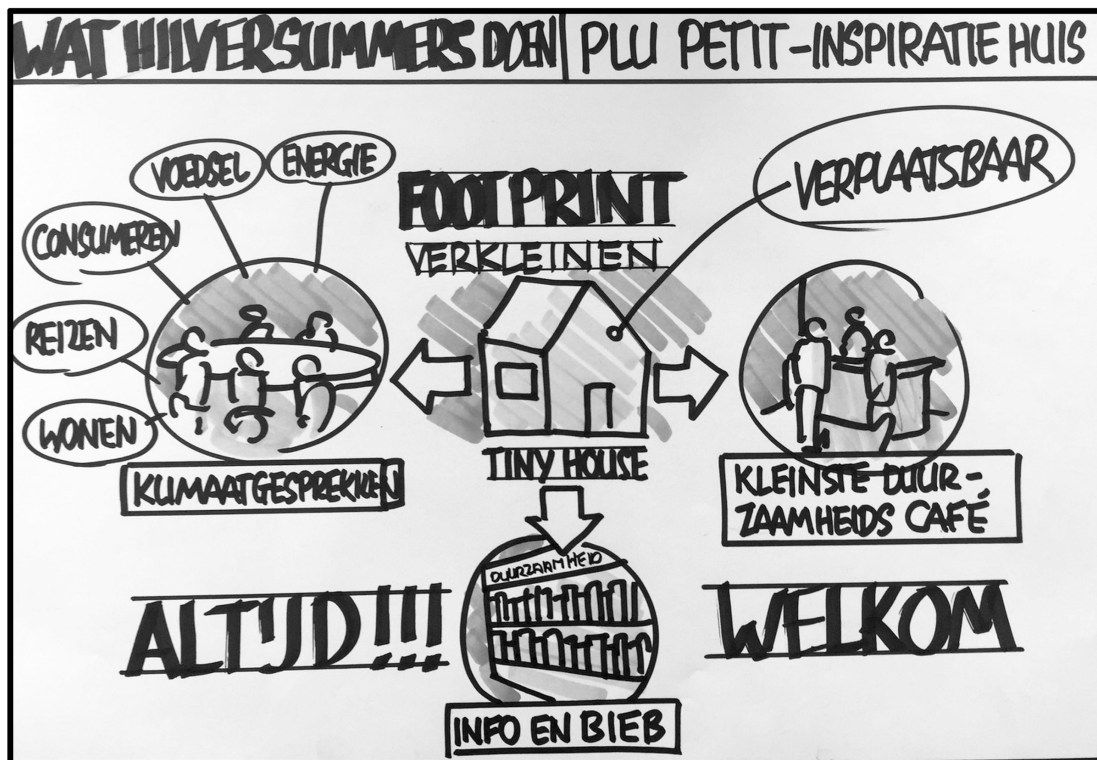 WAT HILVERSUMMERS DOEN
PLU PETIT-INSPIRATIE HUIS
VOEDSEL
ENERGIE
CONSUMEREN
REIZEN
WONEN
KLIMAATGESPREKKEN
FOOTPRINT
VERKLEINEN
VERPLAATSBAAR
TINY HOUSE
KLEINSTE DUUR-
ZAAMHEIDS CAFÉ
DUURZAAMHEID
ALTIJD!!!
WELKOM
INFO EN BIEB